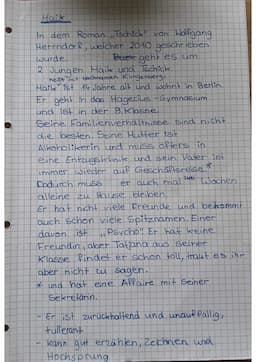 Maik
In dem Roman „Tschick“ von Wolfgang
Herrndorf, welcher 2010 geschrieben
wurde. geht es um
2 Jungen Maik und Tschick.
Maik ist 14 Jahre alt und wohnt in Berlin.
Er geht in das Hagecius-Gymnasium
und ist in der 8. Klasse.
Seine Familienverhältnisse sind nicht
die besten. Seine Mutter ist
Alkoholikerin und muss öfters in
eine Entzugsklinik und sein Vater ist
immer wieder auf Geschäftsreise*
Dadurch muss er auch mal Wochen
alleine zu Hause bleiben.
Er hat nicht viele Freunde und bekommt
auch schon viele Spitznamen. Einer
davon ist „Psycho“. Er hat keine
Freundin, aber Tatjana aus seiner
Klasse findet er schon toll, traut es ihr
aber nicht zu sagen.
* und hat eine Affaire mit seiner
Sekretärin.
- Er ist zurückhaltend und unauffällig,
tullerant
- kann gut erzählen, Zeichnen und
Hochsprung